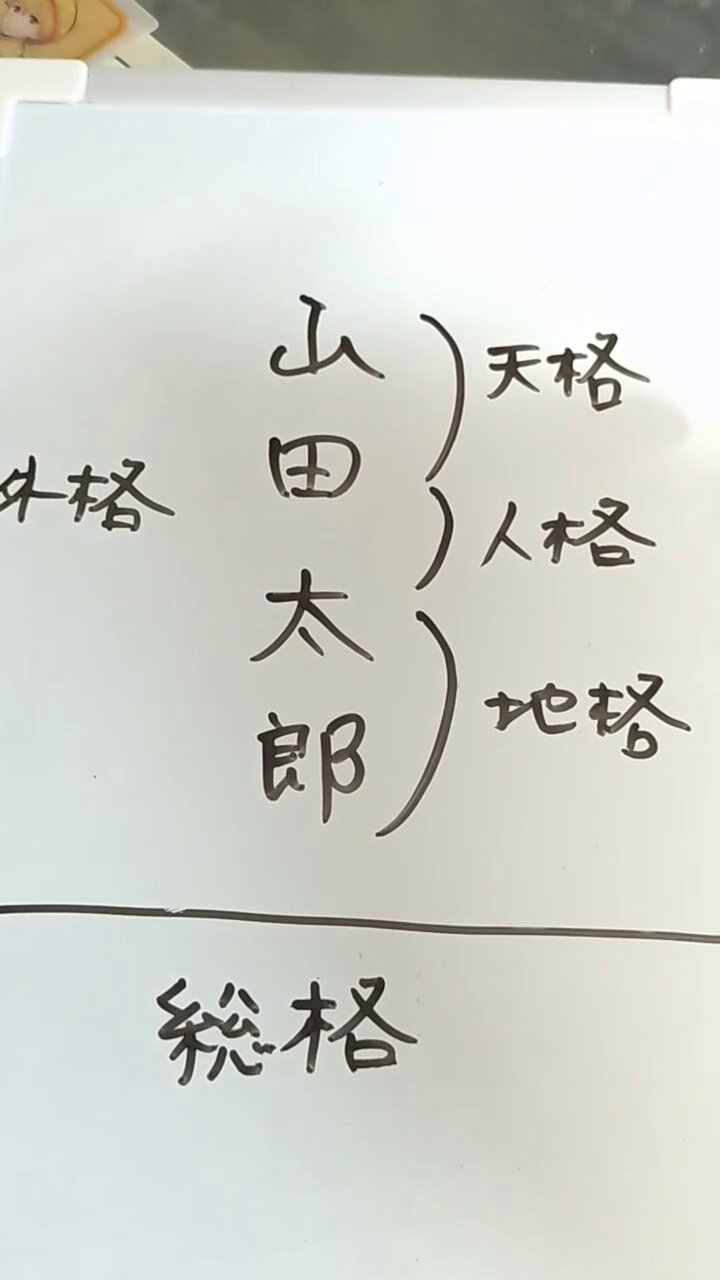 山 天格
田
外格
人格
太
地格
郎
総格